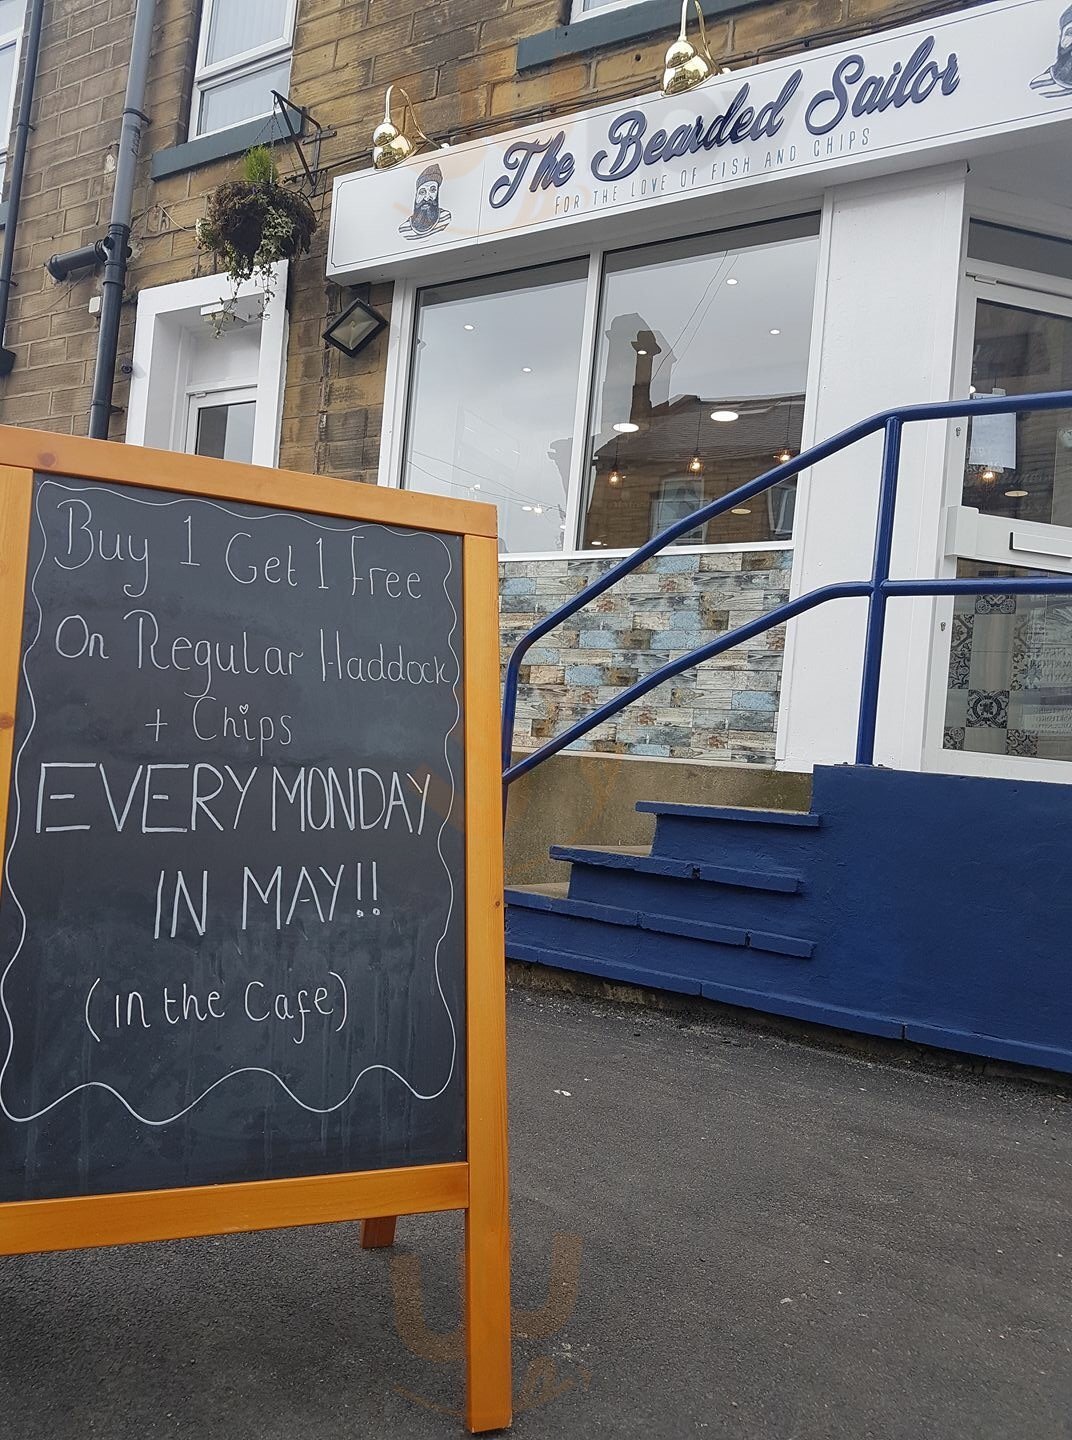 The Bearded Sailor
FOR THE LOVE OF FISH AND CHIPS
Buy 1 Get 1 Free
On Regular Haddock
+ Chips
EVERY MONDAY
IN MAY!!
(in the Cafe)